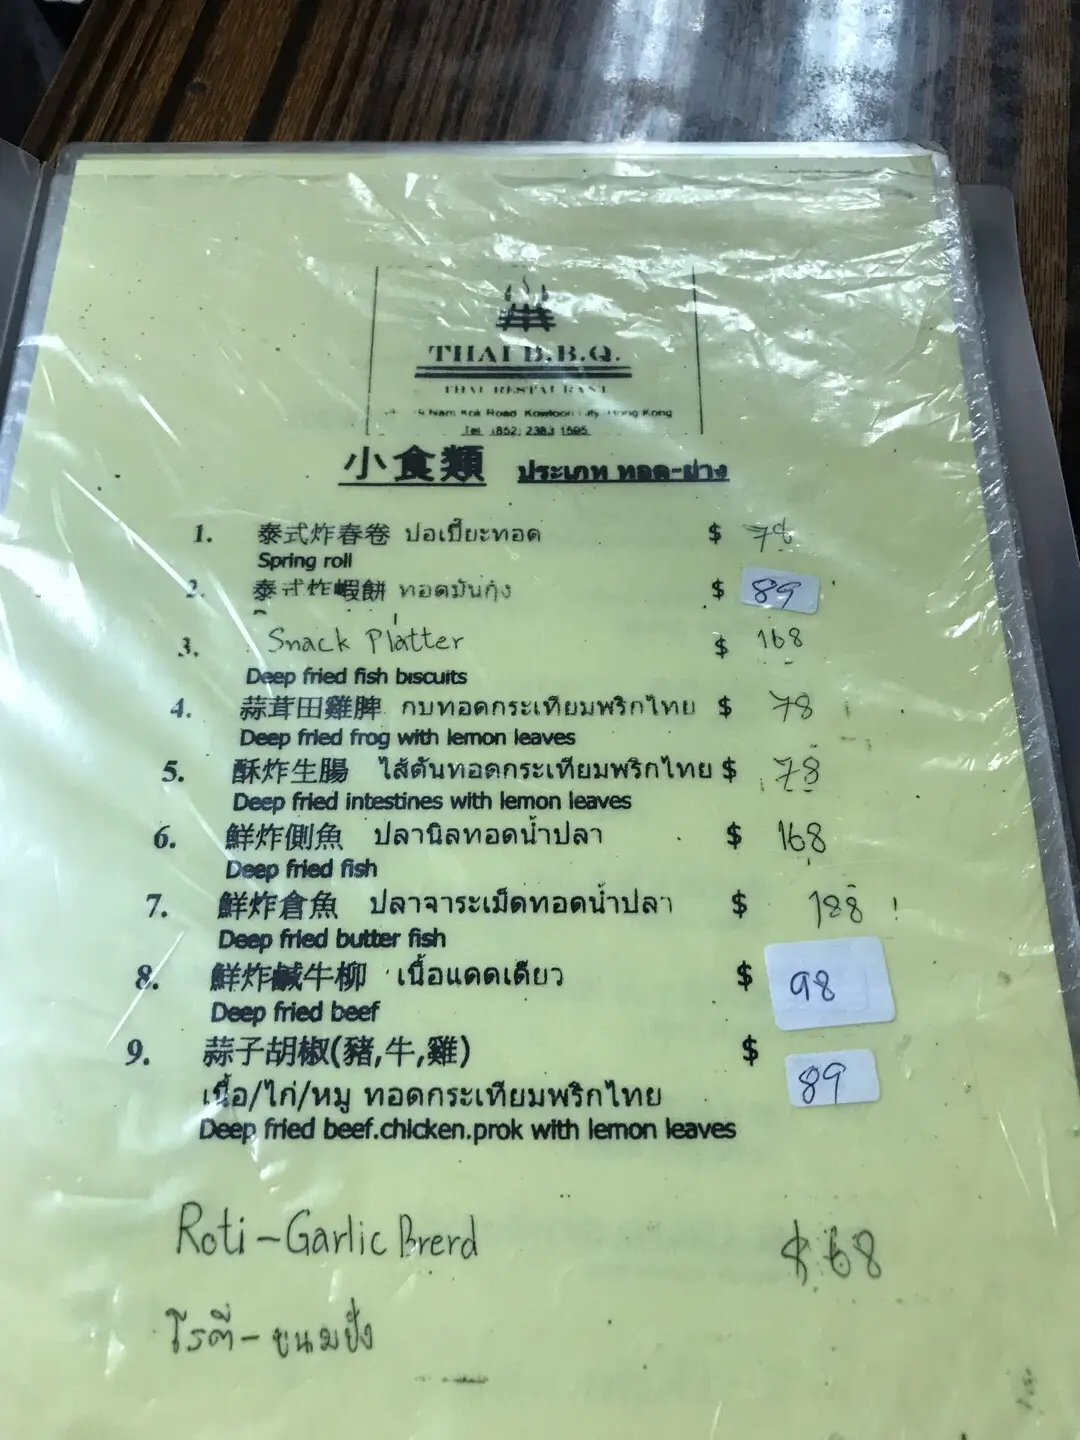 THAI B.B.Q.
THAI RESTAURANT
Nam Kok Road Kowloon City Hong Kong
Tel (852) 2383 1595
小食類 ประเภท ทอด-ย่าง
1. 泰式炸春卷 ปอเปี๊ยะทอด $ 78
Spring roll
2. 泰式炸蝦餅 ทอดมันกุ้ง $ 89
3. Snack Platter $ 168
Deep fried fish biscuits
4. 蒜茸田雞脾 กบทอดกระเทียมพริกไทย $ 78
Deep fried frog with lemon leaves
5. 酥炸生腸 ไส้ตันทอดกระเทียมพริกไทย $ 78
Deep fried intestines with lemon leaves
6. 鮮炸側魚 ปลานิลทอดน้ำปลา $ 168
Deep fried fish
7. 鮮炸倉魚 ปลาจาระเม็ดทอดน้ำปลา $ 188
Deep fried butter fish
8. 鮮炸鹹牛柳 เนื้อแดดเดียว $ 98
Deep fried beef
9. 蒜子胡椒(豬,牛,雞) $ 89
เนื้อ/ไก่/หมู ทอดกระเทียมพริกไทย
Deep fried beef.chicken.prok with lemon leaves
Roti-Garlic Brerd $68
โรตี-ขนมปัง